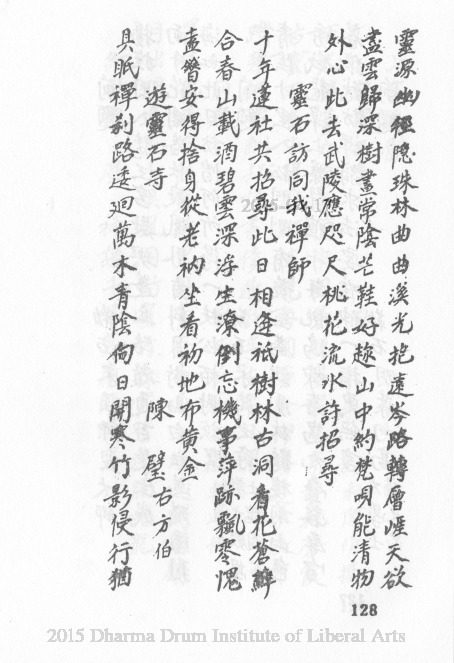 靈源幽徑隠珠林曲曲溪光抱遠岑路轉層崖天欲
盡雲歸深樹晝常陰芒鞋好趂山中約梵唄能清物
外心此去武陵應咫尺桃花流水許招尋
靈石訪同我禪師
十年蓮社共招尋此日相逢祇樹林古洞看花蒼蘚
合春山載酒碧雲深浮生潦倒忘機事萍跡飄零愧
盍簪安得捨身從老衲坐看初地布黃金
遊靈石寺
陳璧右方伯
具眠禪刹路逶迴萬木青陰向日開寒竹影侵行
128
2015 Dharma Drum Institute of Liberal Arts